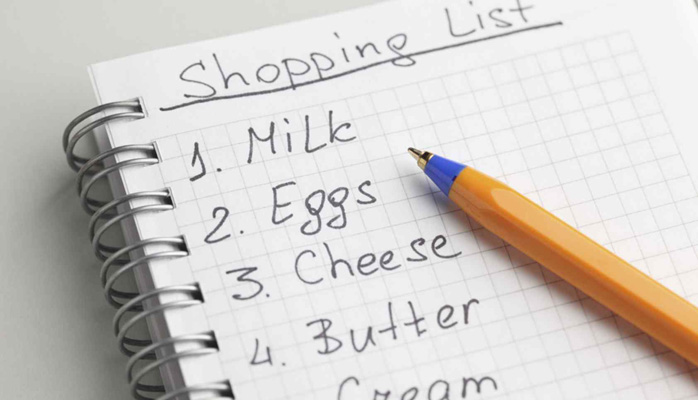 Shopping List
1. Milk
2. Eggs
3. Cheese
4. Butter
Cream